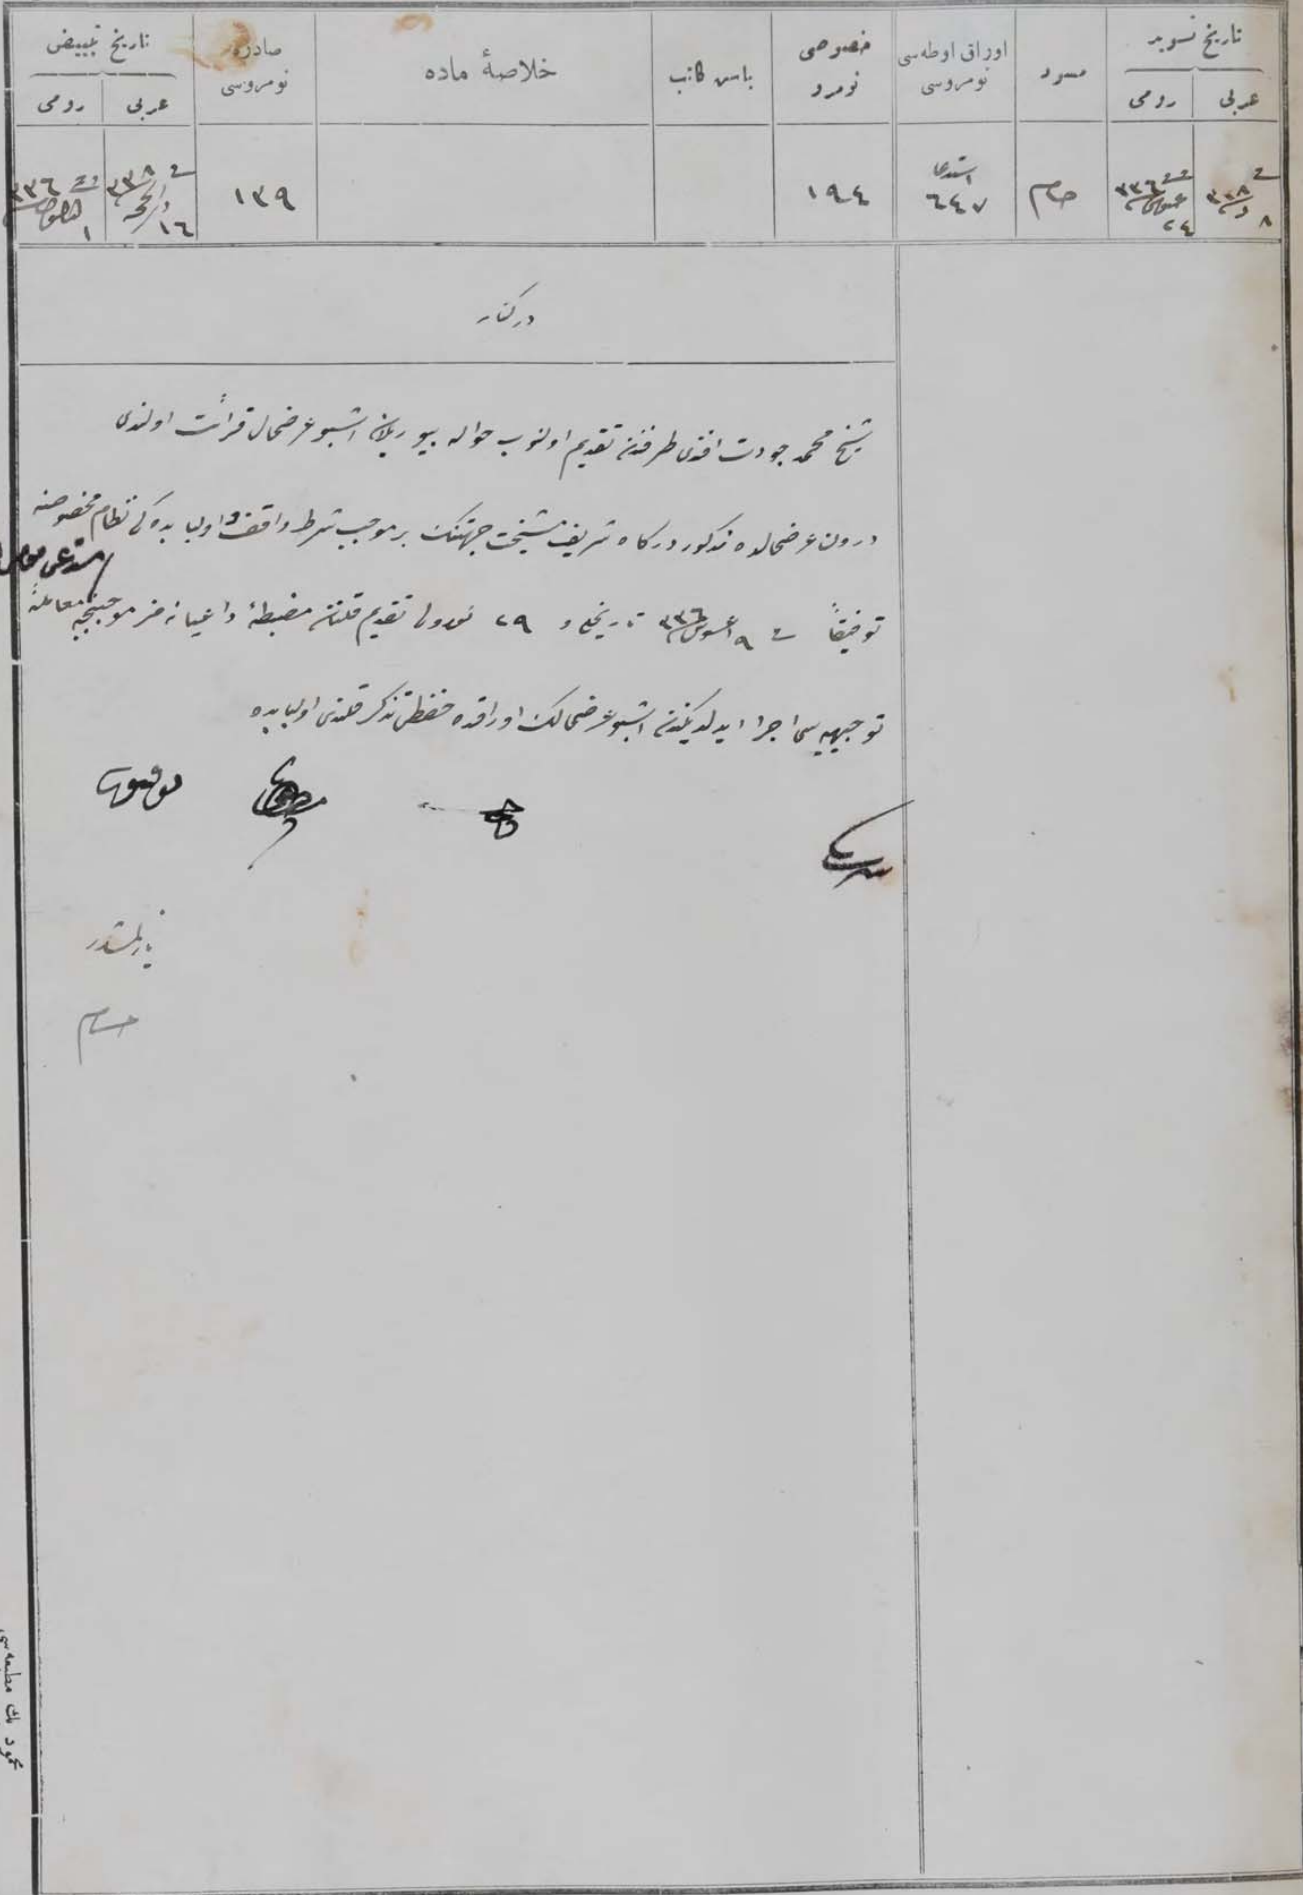 تاریخ تسوید
عربی رومی
مسود
اوراق اوطه‌سی نومروسی
خصوصی نومرو
باش كاتب
خلاصهٔ ماده
صادره نومروسی
تاریخ تبییض
عربی رومی
٨ ٣٣٨
٢٤ اغستوس ٣٣٦
استدعا
٦٤٧
١٩٤
١٣٩
١٦ ذی الحجه ٣٣٨
١ ٣٣٦
دركنار
شیخ محمد جودت افندی طرفندن تقدیم اولنوب حواله بیوریلان اشبو عرضحال قرائت اولندی
درون عرضحالده مذكور درگاه شریف مشیخت جهتنك بر موجب شرط واقف و اولبابده كی نظام مخصوصنه
توفیقاً ٩ اغستوس ٣٣٦ تاریخلی و ٢٩ نومرولی تقدیم قلنان مضبطهٔ داعیانه‌مز موجبنجه معاملهٔ
توجیهیه‌سی اجرا ایدلدیكندن اشبو عرضحالك اوراقده حفظی تذكر قلندی اولبابده
یازلمشدر
محمود بك مطبعه‌سی